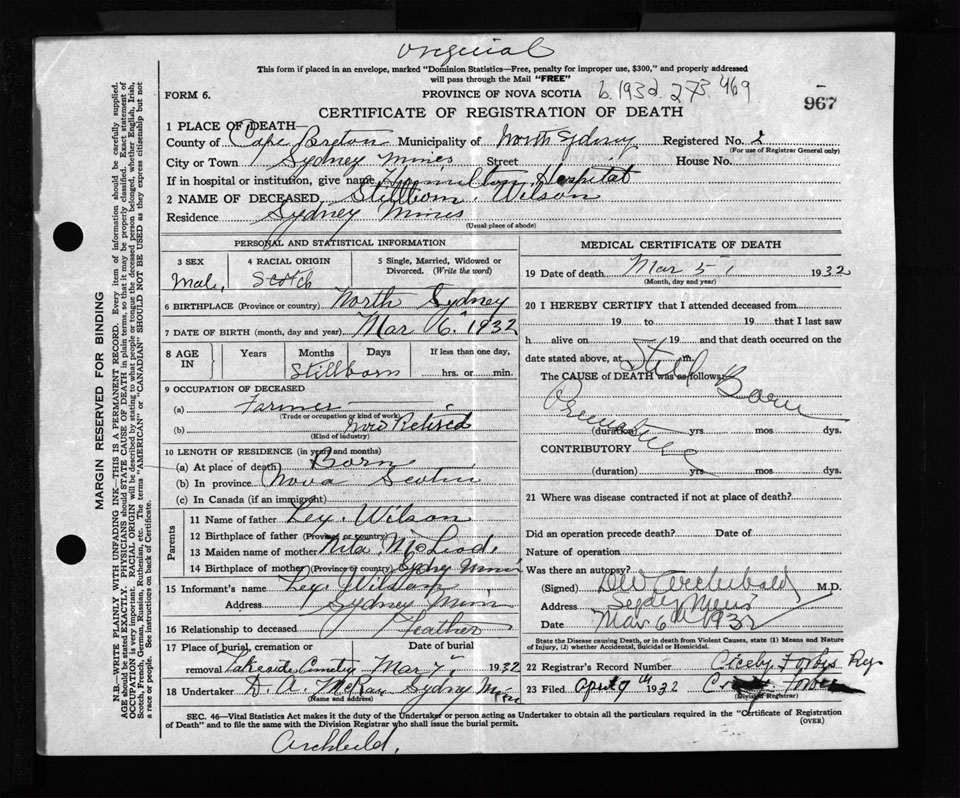 Original
This form if placed in an envelope, marked "Dominion Statistics—Free, penalty for improper use, $300," and properly addressed
will pass through the Mail "FREE"
FORM 6.
PROVINCE OF NOVA SCOTIA
b. 1932. 273. 469
967
CERTIFICATE OF REGISTRATION OF DEATH
1 PLACE OF DEATH—
County of Cape Breton Municipality of North Sydney Registered No. 2
(For use of Registrar General only)
City or Town Sydney Mines Street House No.
If in hospital or institution, give name Hamilton Hospital
2 NAME OF DECEASED Stillborn Wilson
Residence Sydney Mines
(Usual place of abode)
PERSONAL AND STATISTICAL INFORMATION
3 SEX 4 RACIAL ORIGIN 5 Single, Married, Widowed or Divorced. (Write the word)
Male, Scotch
6 BIRTHPLACE (Province or country) North Sydney
7 DATE OF BIRTH (month, day and year) Mar 6" 1932
8 AGE IN Years Months Days If less than one day,
Stillborn hrs. or min.
9 OCCUPATION OF DECEASED
(a) Farmer
(Trade or occupation or kind of work)
(b) Now Retired
(Kind of industry)
10 LENGTH OF RESIDENCE (in years and months)
(a) At place of death Born
(b) In province Nova Scotia
(c) In Canada (if an immigrant)
Parents
11 Name of father Lex. Wilson
12 Birthplace of father (Province or country)
13 Maiden name of mother McLeod
14 Birthplace of mother (Province or country) Sydny Mines
15 Informant's name Lex Wilson
Address Sydney Mines
16 Relationship to deceased Feather
17 Place of burial, cremation or removal Date of burial
Lakeside Cemetery Mar 7" 1932
18 Undertaker D. A. McRae Sydney Mines
(Name and address)
MEDICAL CERTIFICATE OF DEATH
19 Date of death Mar 5, 1932
(Month, day and year)
20 I HEREBY CERTIFY that I attended deceased from
19 to 19 that I last saw
h alive on 19 and that death occurred on the
date stated above, at m.
The CAUSE of DEATH was as follows:
Still Born
Premature
(duration) yrs mos dys.
CONTRIBUTORY
(duration) yrs mos dys.
21 Where was disease contracted if not at place of death?
Did an operation precede death? Date of
Nature of operation
Was there an autopsy?
(Signed) Archibald M.D.
Address
Date Mar 6th 1932
State the Disease causing Death, or in death from Violent Causes, state (1) Means and Nature
of Injury, (2) whether Accidental, Suicidal or Homicidal.
22 Registrar's Record Number Forbes Reg
23 Filed April 9th 1932 Forbes
(Division Registrar)
SEC. 46—Vital Statistics Act makes it the duty of the Undertaker or person acting as Undertaker to obtain all the particulars required in the "Certificate of Registration
of Death" and to file the same with the Division Registrar who shall issue the burial permit.
(OVER)
Archbild.
MARGIN RESERVED FOR BINDING
N.B.—WRITE PLAINLY WITH UNFADING INK—THIS IS A PERMANENT RECORD. Every item of information should be carefully supplied.
AGE should be stated EXACTLY. PHYSICIANS should STATE CAUSE OF DEATH in plain terms, so that it may be properly classified. Exact statement of
OCCUPATION is very important. RACIAL ORIGIN will be described by stating to what people or tongue the deceased person belonged, whether English, Irish,
Scotch, French, German, Russian, Ruthenian, etc. The terms "AMERICAN" or "CANADIAN" SHOULD NOT BE USED as they express citizenship but not
a race or people. See instructions on back of Certificate.